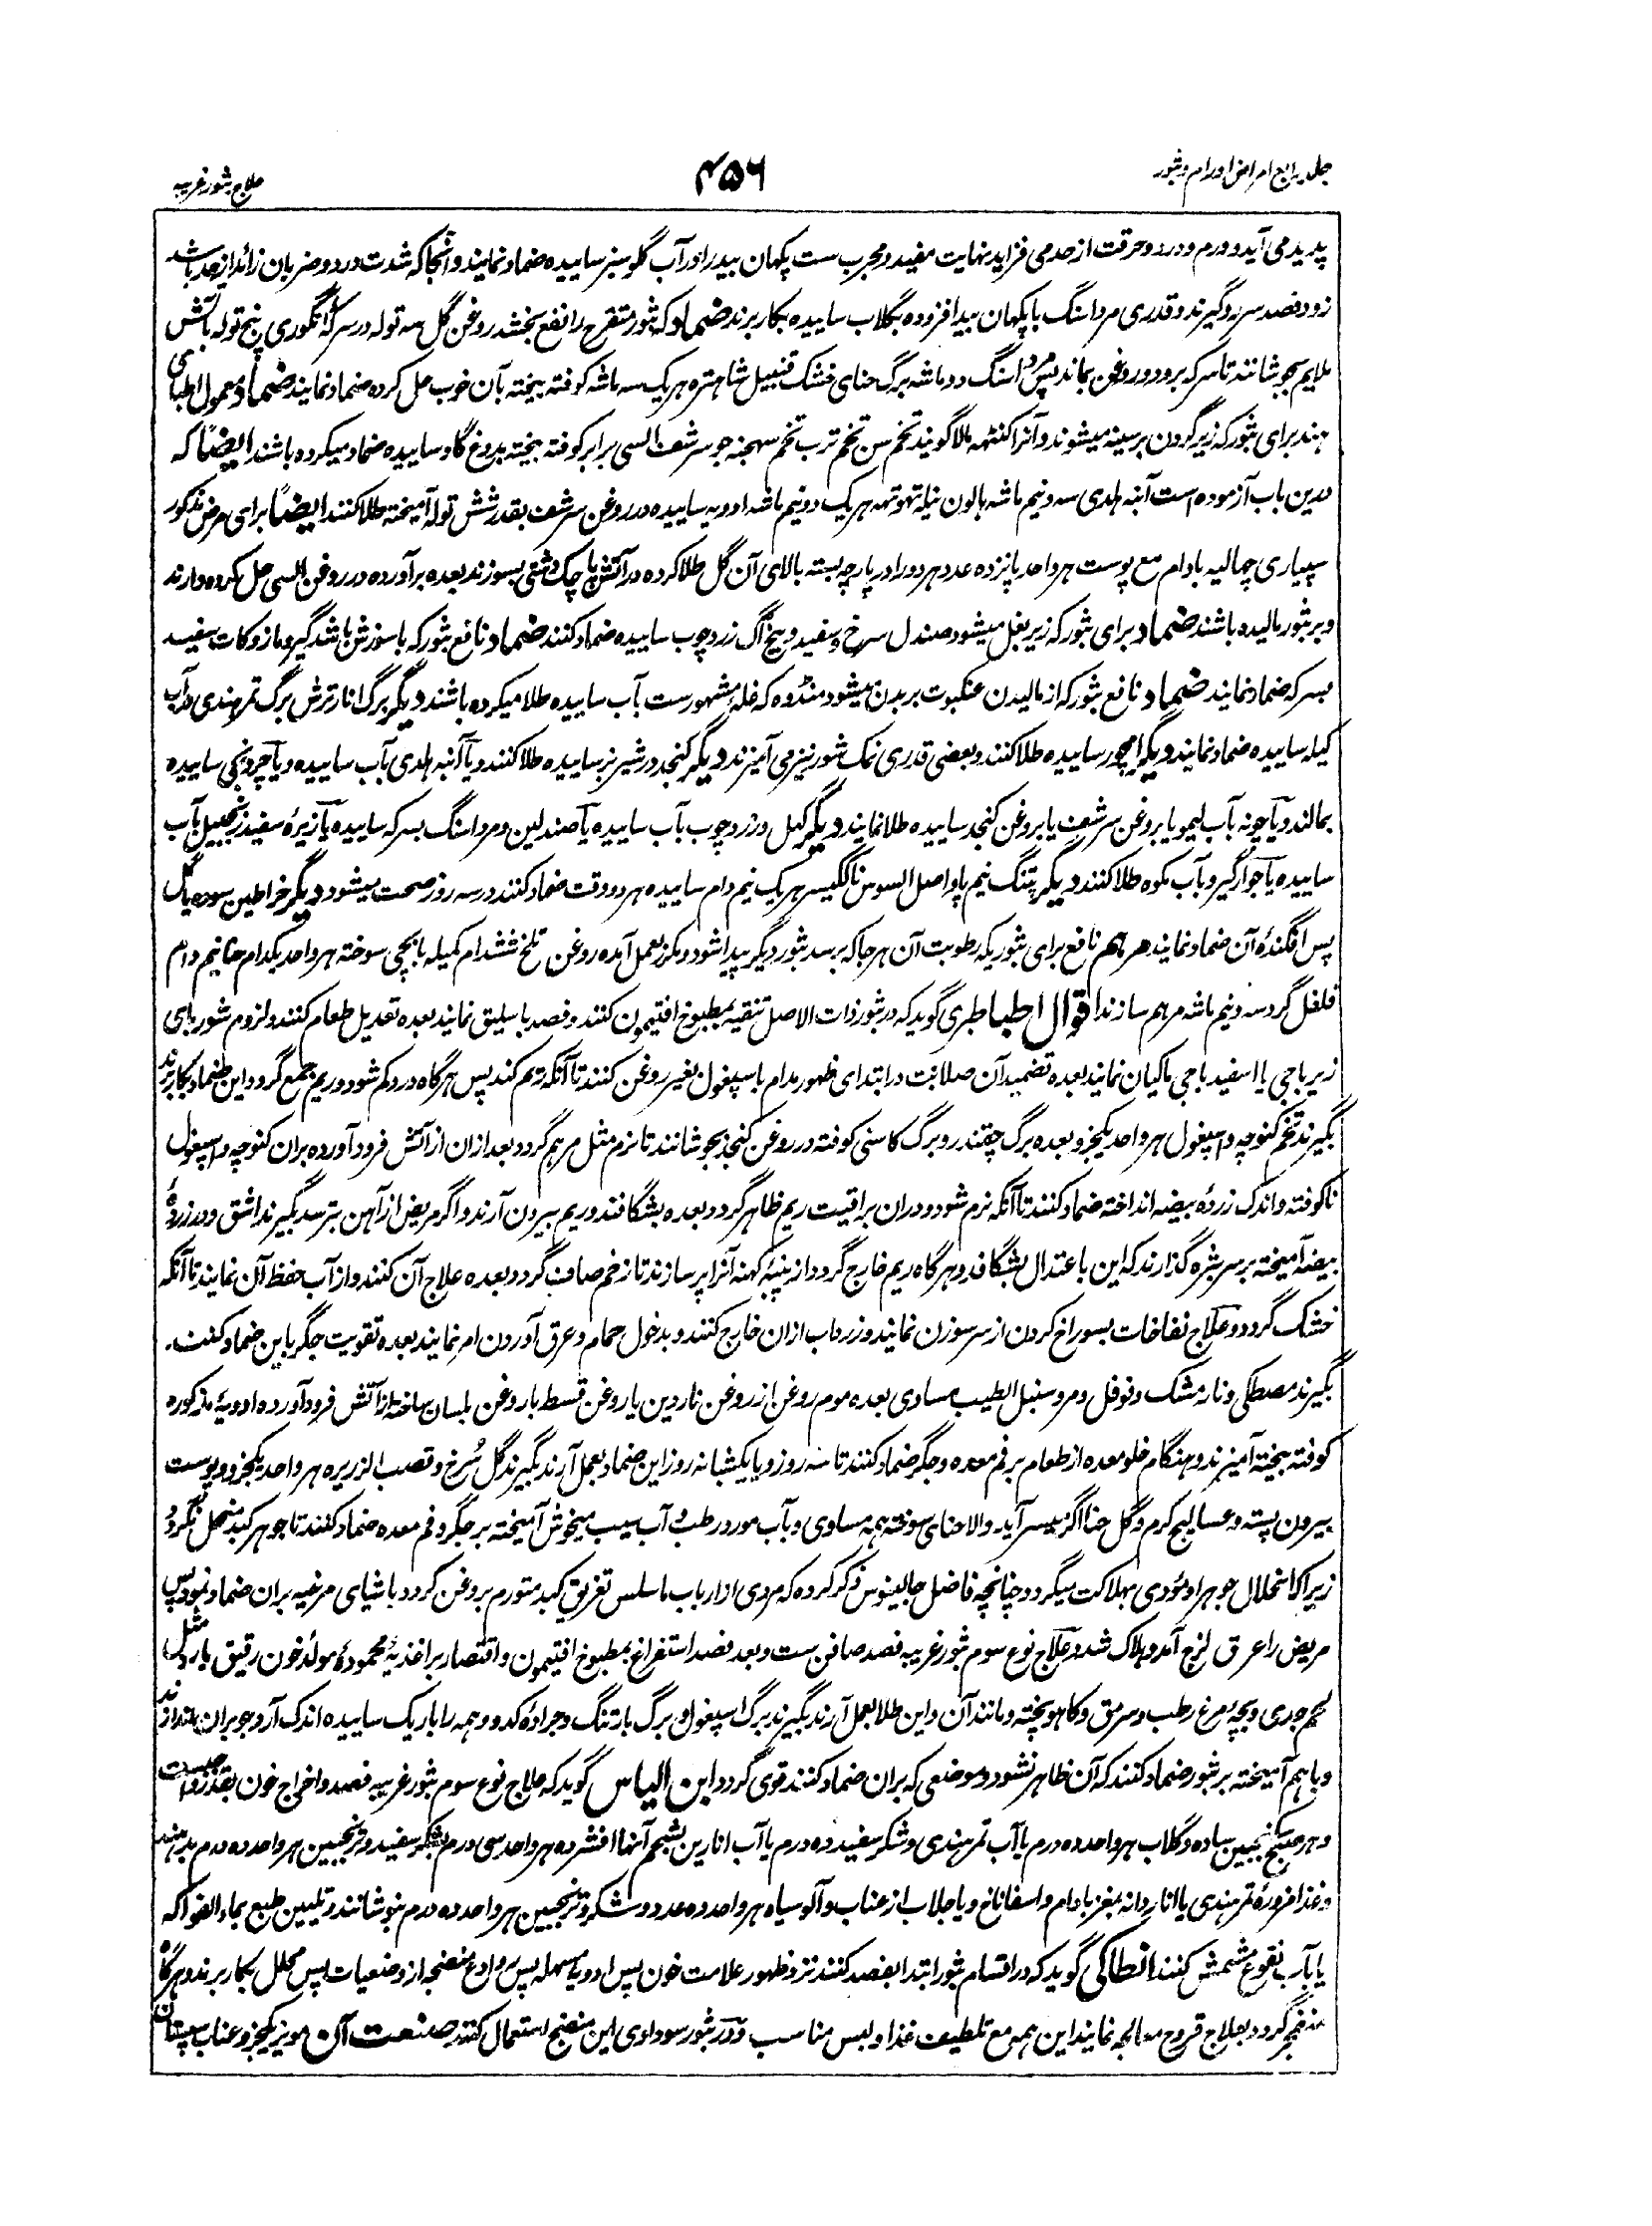 جلد رابع امراض اورام و بثور
۴۵۶
علاج بثور غریبه
پدید می آید و ورم و درد و حرقت از حد می فزاید نهایت مفید و مجرب ست پکهان بید را در آب گلو سبز ساییده ضماد نمایند و آنجا که شدت درد و ضربان زائد از حد باشد
زود فصد سر رو گیرند و قدری مرداسنگ با پکهان بید افزوده بگلاب ساییده بکار برند ضماد که بثور متقرح را نفع بخشد روغن گل سه توله در سرکه انگوری پنج توله بآتش
ملایم بجوشانند تا سرکه برود و روغن بماند پس مرداسنگ دو ماشه برگ حنای خشک قنبیل شاهتره هریک سه ماشه کوفته بیخته بآن خوب حل کرده ضماد نمایند ضماد معمول اطبای
هند برای بثور که زیر گردن بر سینه میشوند و آنرا کنٹهه مالا گویند تخم سن تخم ترب تخم سهجنه جو سرشف السی برابر کوفته بیخته بدوغ گاو ساییده ضماد میکرده باشند ایضاً که
درین باب آزموده است آنبه هلدی سه و نیم ماشه بالون نیله تهوتهه هریک دو نیم ماشه ادویه ساییده در روغن سرشف بقدر شش توله آمیخته طلا کنند ایضاً برای مرض مذکور
سپیاری چهالیه بادام مع پوست هر واحد پانزده عدد هر دو را در پارچه بسته بالای آن گل طلا کرده در آتش پاچک دشتی بسوزند بعده برآورده در روغن السی حل کرده دارند
و بر بثور مالیده باشند ضماد برای بثور که زیر بغل میشود صندل سرخ و سفید و بیخ آگ زردچوب ساییده ضماد کنند ضماد نافع بثور که با سوزش باشد گیرو مازو کات سفید
بسرکه ضماد نمایند ضماد نافع بثور که از مالیدن عنکبوت بر بدن میشود منڈوه که غله مشهورست بآب ساییده طلا میکرده باشند دیگر برگ انار ترش برگ تمر هندی بآب
کیله ساییده ضماد نمایند دیگر امچور ساییده طلا کنند و بعضی قدری نمک شور نیز می آمیزند دیگر کنجد در شیر بز ساییده طلا کنند و یا آنبه هلدی بآب ساییده و یا چرونجی ساییده
بمالند و یا چونه بآب لیمو یا بروغن سرشف یا بروغن کنجد ساییده طلا نمایند دیگر گل و زردچوب بآب ساییده یا صندلین و مرداسنگ بسرکه ساییده یا زیره سفید زنجبیل بآب
ساییده یا جو ارگیر و بآب مکوه طلا کنند دیگر پتنگ نیم پاو اصل السوس ناگکیسر هریک نیم دام ساییده هر دو وقت ضماد کنند در سه روز صحت میشود دیگر خراطین سوده یا گل
پس افگنده آن ضماد نمایند مرهم نافع برای بثوریکه رطوبت آن هر جا که برسد بثور دیگر پیدا شود و مکرر بعمل آمده روغن تلخ ششدام کمیله بابچی سوخته هر واحد یکدام حنا نیم دام
فلفل گرد سه و نیم ماشه مرهم سازند اقوال اطبا طبری گوید که در بثور ذات الاصل تنقیه بمطبوخ افتیمون کنند و فصد باسلیق نمایند بعده تعدیل طعام کنند و لزوم شوربای
زیرباجی یا اسفیدباجی ماکیان نمایند بعده تضمید آن صلابت در ابتدای ظهور مدام باسپغول بغیر روغن کنند تا آنکه ریم کند پس هرگاه درد کم شود و ریم جمع گردد این ضماد بکار برند
بگیرند تخم کنوچه و اسپغول هر واحد یکجزو بعده برگ چقندر و برگ کاسنی کوفته در روغن کنجد بجوشانند تا نرم مثل مرهم گردد بعد ازان از آتش فرود آورده بران کنوچه و اسپغول
ناکوفته و اندک زرده بیضه انداخته ضماد کنند تا آنکه نرم شود و دران براقیت ریم ظاهر گردد بعده بشگافند و ریم بیرون آرند و اگر مریض از آهن بترسد بگیرند اشق و در زرده
بیضه آمیخته بر سر بثره گذارند که این باعتدال بشگافد و هرگاه ریم خارج گردد از پنبه کهنه آنرا پر سازند تا زخم صاف گردد بعده علاج آن کنند و از آب حفظ آن نمایند تا آنکه
خشک گردد و علاج نفاخات بسوراخ کردن از سر سوزن نمایند و زرداب ازان خارج کنند و بدخول حمام و عرق آوردن امر نمایند بعده تقویت جگر باین ضماد کنند
بگیرند مصطکی و نارمشک و فوفل و مر و سنبل الطیب مساوی بعده موم روغن از روغن ناردین یا روغن قسط یا روغن بلسان ساخته از آتش فرود آورده ادویه مذکوره
کوفته بیخته آمیزند و هنگام خلو معده از طعام بر فم معده و جگر ضماد کنند تا سه روز و یا یکشبانه روز این ضماد بعمل آرند بگیرند گل سرخ و قصب الزریره هر واحد یکجزو و پوست
بیرون پسته و عسالیج کرم و گل حنا اگر میسر آید والا حنای سوخته همه مساوی و بآب مورد رطب و آب سیب میخوش آمیخته بر جگر و فم معده ضماد کنند تا جوهر کبد منحل نگردد
زیراکه انحلال جوهر او مؤدی بهلاکت میگردد چنانچه فاضل جالینوس ذکر کرده که مردی از ارباب ماسلس تغریق کبد متورم بروغن کردد باشیای مرخیه بران ضماد نمود پس
مریض را عرق لزج آمد و هلاک شد و علاج نوع سوم بثور غریبه فصد صافن ست و بعد فصد استفراغ بمطبوخ افتیمون و اقتصار بر اغذیه محموده مولد خون رقیق بارد مثل
لحم جدی و بچه مرغ رطب و سرمق و کاهو پخته و مانند آن و این طلا بعمل آرند بگیرند برگ اسپغول و برگ بارتنگ و جراده کدو و همه را باریک ساییده اندک آرد جو بران اندازند
و باهم آمیخته بر بثور ضماد کنند که آن ظاهر نشود و موضعی که بران ضماد کنند قوی گردد ابن الیاس گوید که علاج نوع سوم بثور غریبه فصد و اخراج خون بقدر واجب ست
و هر صبح سکنجبین ساده و گلاب هر واحد ده درم یا آب تمر هندی و شکر سفید ده درم یا آب انارین بشحم آنها افشرده هر واحد سی درم بشکر سفید و ترنجبین هر واحد ده درم بدهند
و غذا مزوره تمر هندی یا انار دانه بمغز بادام و اسفاناخ و یا جلاب از عناب و آلو سیاه هر واحد ده عدد و شکر و ترنجبین هر واحد ده درم بنوشانند و تلیین طبع بماء الفواکه
یا بآب نقوع مشمش کنند انطاکی گوید که در اقسام بثور ابتدا بفصد کنند نزد ظهور علامت خون پس ادویه مسهله پس روادع منضجه از وضعیات پس محلل بکار برند و هرگاه
منفجر گردد بعلاج قروح معالجه نمایند این همه مع تلطیف غذا و لبس مناسب و در بثور سوداوی این منضج استعمال کنند صنعت آن مویز یکجزو عناب سپستان